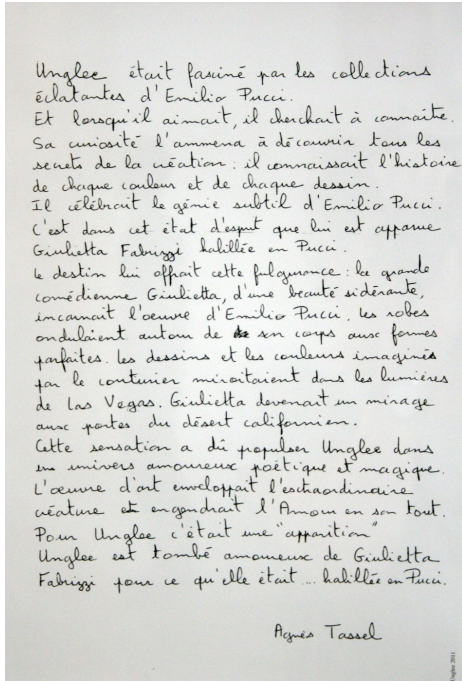 Unglee était fasciné par les collections
éclatantes d'Emilio Pucci.
Et lorsqu'il aimait, il cherchait à connaître.
Sa curiosité l'ammena à découvrir tous les
secrets de la création : il connaissait l'histoire
de chaque couleur et de chaque dessin.
Il célébrait le génie subtil d'Emilio Pucci.
C'est dans cet état d'esprit que lui est apparue
Giulietta Fabrizzi habillée en Pucci.
Le destin lui offrait cette fulgurance : la grande
comédienne Giulietta, d'une beauté sidérante,
incarnait l'oeuvre d'Emilio Pucci. Les robes
ondulaient autour de son corps aux formes
parfaites. Les dessins et les couleurs imaginés
par le couturier miroitaient dans les lumières
de Las Vegas. Giulietta devenait un mirage
aux portes du désert californien.
Cette sensation a dû propulser Unglee dans
un univers amoureux poétique et magique.
L'œuvre d'art enveloppait l'extraordinaire
créature et engendrait l'Amour en son tout.
Pour Unglee c'était une "apparition"
Unglee est tombé amoureux de Giulietta
Fabrizzi pour ce qu'elle était ... habillée en Pucci.
Agnès Tassel
Unglee 2011